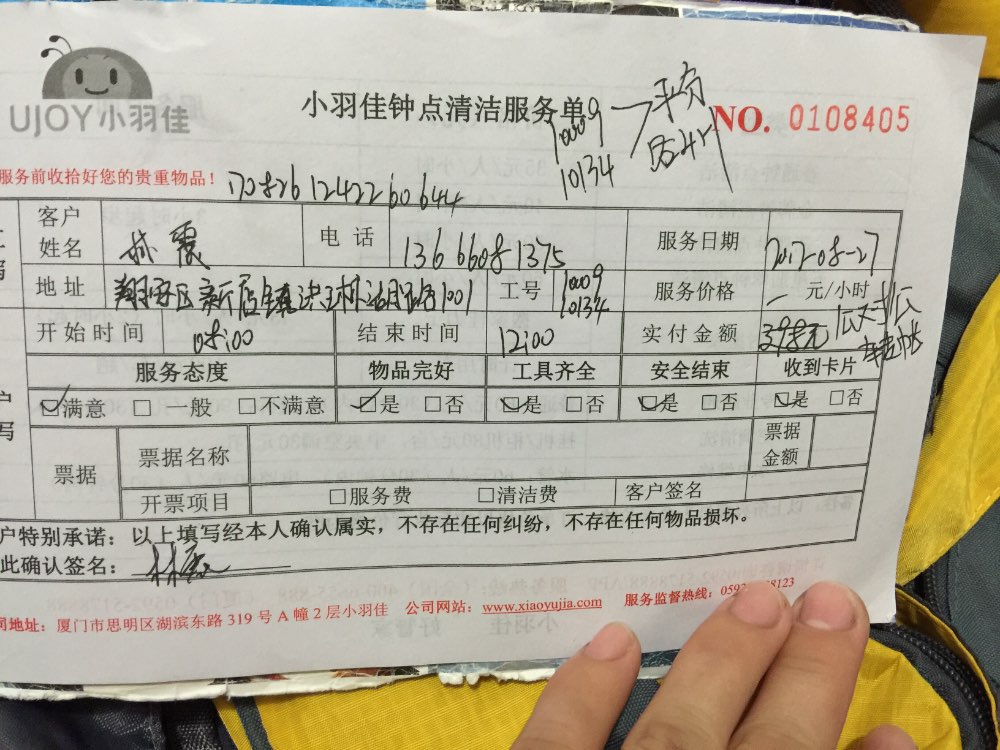 UJOY小羽佳
小羽佳钟点清洁服务单
10009
10134
NO. 0108405
服务前收拾好您的贵重物品!
客户姓名 林震 电话 13666081375 服务日期 2017-08-27
地址 翔安区新店镇洪 1001 工号 10009 10134 服务价格 一 元/小时
开始时间 08:00 结束时间 12:00 实付金额 398元
服务态度 物品完好 工具齐全 安全结束 收到卡片
☑满意 □一般 □不满意 ☑是 □否 ☑是 □否 ☑是 □否 ☑是 □否
票据 票据名称 票据金额
开票项目 □服务费 □清洁费 客户签名
户特别承诺:以上填写经本人确认属实,不存在任何纠纷,不存在任何物品损坏。
此确认签名: 林震
地址:厦门市思明区湖滨东路 319 号 A 幢 2 层小羽佳 公司网站:www.xiaoyujia.com 服务监督热线:0592-